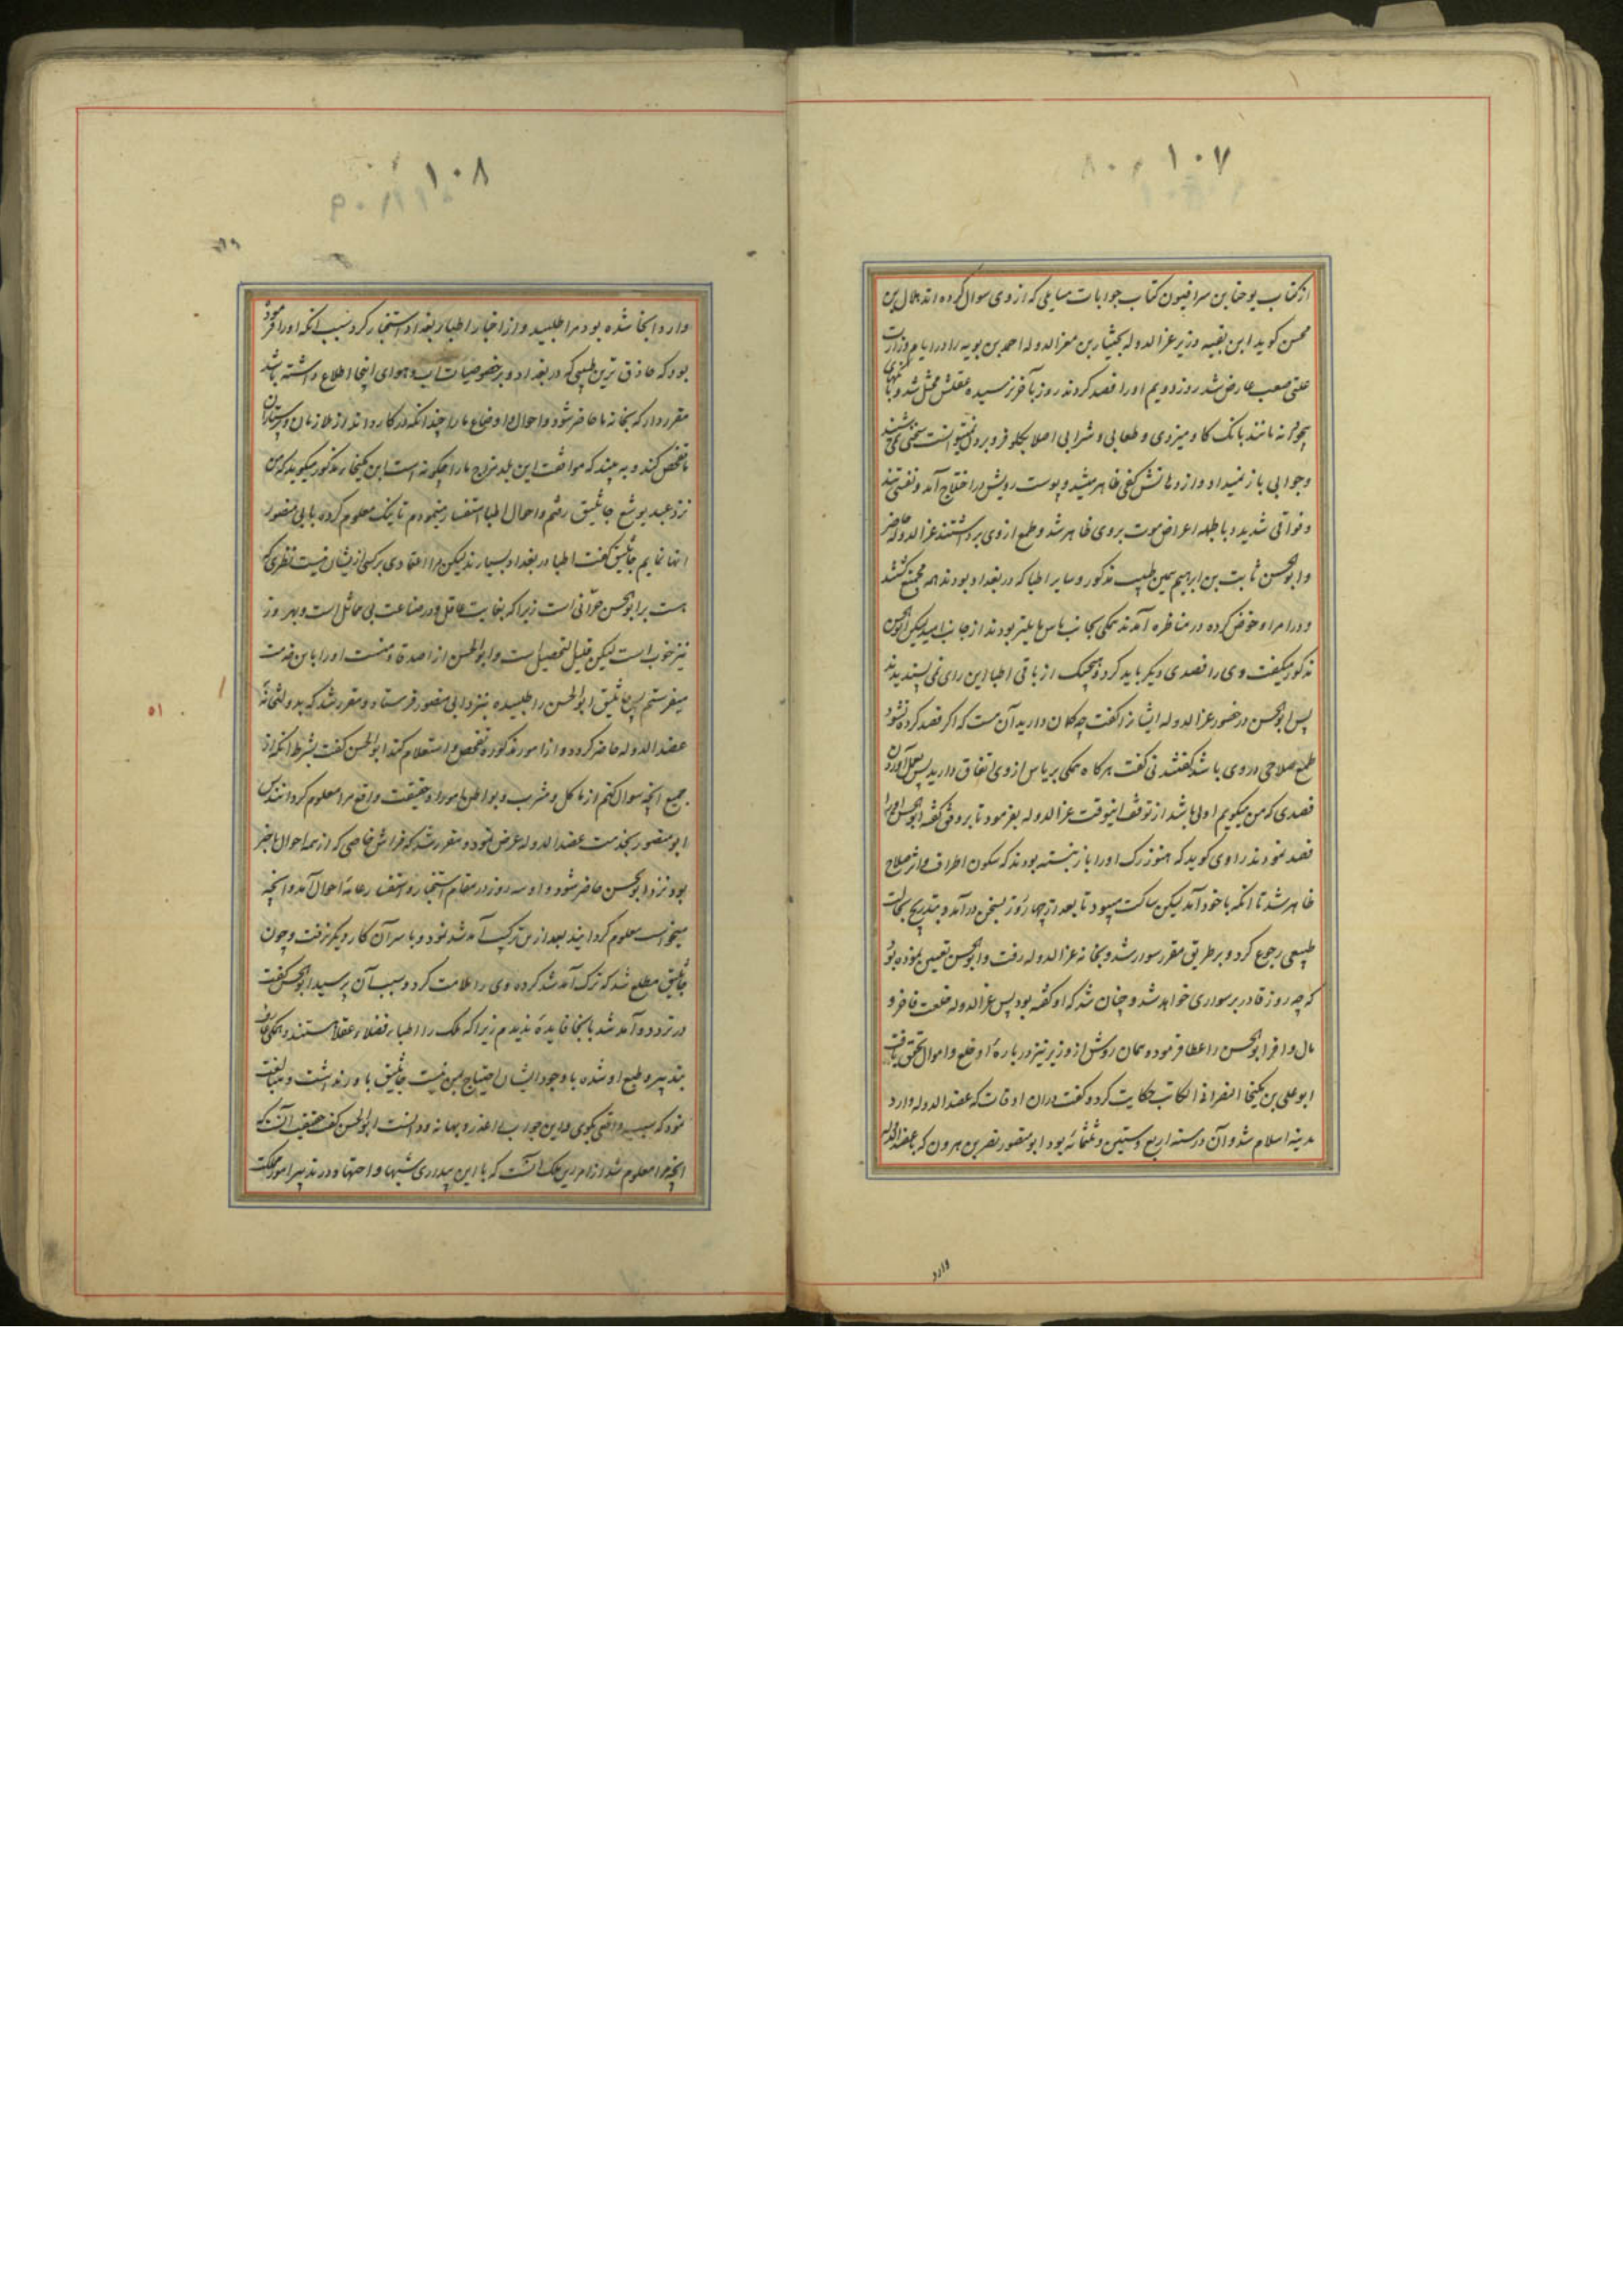 ١٠٧
از کتاب یوحنا بن سرافیون کتاب جوابات مسایلی که از وی سوال کرده اند هلال بن
محسن کوید ابن بقیه وزیر عزالدوله بختیار بن معزالدوله احمد بن بویه را در ایام وزارت
علتی صعب عارض شد روز دویم او را فصد کردند روز بآخر نرسیده عقلش مختل شد و
مانند بانک کاو میزدی و طعامی و شرابی اصلا بکلو فرو بردن نمیتوانست سخنی
و جوابی باز نمیداد و از دهانش کفی ظاهر میشد و پوست رویش در اختلاج آمد و نفسی تند
و فواقی شدید و بالجمله اعراض موت بروی ظاهر شد و طمع از وی برداشتند عزالدوله حاضر
و ابوالحسن ثابت بن ابراهیم همین طبیب مذکور و سایر اطبا که در بغداد بودند همه مجتمع کشتند
و در امر او خوض کرده در مناظره آمدند همکی بجانب یاس مایلتر بودند از جانب امید لیکن ابوالحسن
مذکور میکفت وی را فصدی دیکر باید کرد و هیچیک از باقی اطبا این رای نمی پسندیدند
پس ابوالحسن در حضور عزالدوله ایشانرا کفت چه کمان دارید آن هست که اکر فصد کرده نشود
طمع صلاحی در وی باشد کفتند نی کفت هرکاه همکی بر یاس از وی اتفاق دارید پس بعمل آوردن
فصدی که من میکویم اولی باشد از توقف اینوقت عزالدوله بفرمود تا بر وفق کفته ابوالحسن او را
فصد نمودند راوی کوید که هنوز رک او را باز نبسته بودند که سکون اطراف و اثر صلاح
ظاهر شد تا انکه با خود آمد لیکن ساکت میبود تا بعد از چهار روز بسخن درآمد و بتدریج بحالت
طبیعی رجوع کرد و بر طریق مقرر سوار شد و بخانه عزالدوله رفت و ابوالحسن تعیین نموده بود
که چه روز قادر بر سواری خواهد شد و چنان شد که او کفته بود پس عزالدوله خلعت فاخر و
مال وافر ابوالحسن را عطا فرمود و همان روش از وزیر نیز در باره او خلع و اموال تحقق یافت
ابوعلی بن مکیخا النصرانی الکاتب حکایت کرد و کفت در ان اوقات که عضدالدوله وارد
مدینه اسلام شد و آن در سنه اربع و ستین و ثلثمائه بود ابومنصور نصر بن هرون که با عضدالدوله
وارد
١٠٨
وارد انجا شده بود مرا طلبید و از اخبار اطبا بغداد استخبار کرد بسبب انکه او را فرموده
بود که حاذق ترین طبیبی که در بغداد و بر خصوصیات آب و هوای اینجا اطلاع داشته باشد
مقرر دار که بخانه ما حاضر شود و احوال و اوضاع ما را چندانکه در کار داند از ملازمان و پرستاران
ما تفحص کند و به بیند که موافقت این بلد مزاج ما را چکونه است ابن مکیخا مذکور میکوید که من
نزد عبد یوشع جاثلیق رفتم و احوال اطبا استفسار مینمودم تا نیک معلوم کرده بابی منصور
انها نمایم جاثلیق کفت اطبا در بغداد بسیارند لیکن مرا اعتمادی بر کسی از ایشان نیست نظری که
هست بر ابوالحسن حرّانی است زیرا که بغایت عاقل و در صناعت بی مماثل است و بهروز
نیز خوبست لیکن قلیل التحصیل است و ابوالحسن از اصدقاء منست او را باین خدمت
میفرستم پس جاثلیق ابوالحسن را طلبیده بنزد ابی منصور فرستاد و مقرر شد که بدولتخانه
عضدالدوله حاضر کردد و از امور مذکوره تفحص و استعلام کند ابوالحسن کفت بشرط انکه از
جمیع انچه سوال کنم از ماکل و مشرب و بواطن امور او حقیقت واقع مرا معلوم کردانند پس
ابومنصور بخدمت عضدالدوله عرض نمود و مقرر شد که فراش خاصی که از همه احوال باخبر
بود نزد ابوالحسن حاضر شود و او سه روز در مقام استخبار و استفسار عامه احوال آمد و انچه
میخواست معلوم کردانید بعد از من ترک آمد شد نمود و با سر آن کار دیکر نرفت و چون
جاثلیق مطلع شد که ترک آمد شد کرده وی را ملامت کرد و سبب آن پرسید ابوالحسن کفت
در تردد و آمد شد بانجا فایده ندیدم زیرا که ملک را اطباء فضلاء عقلا هستند و همکی عارف
بتدبیر و طبع او شده با وجود ایشان احتیاج بمن نیست جاثلیق باور نداشت و مبالغت
نمود که سبب واقعی بکوی و این جواب را عذر و بهانه دانست ابوالحسن کفت حقیقت آنست که
انچه مرا معلوم شد از امر این ملک آنست که با این بیداری شبها و اجتهاد در تدبیر امور مملکت
٥١